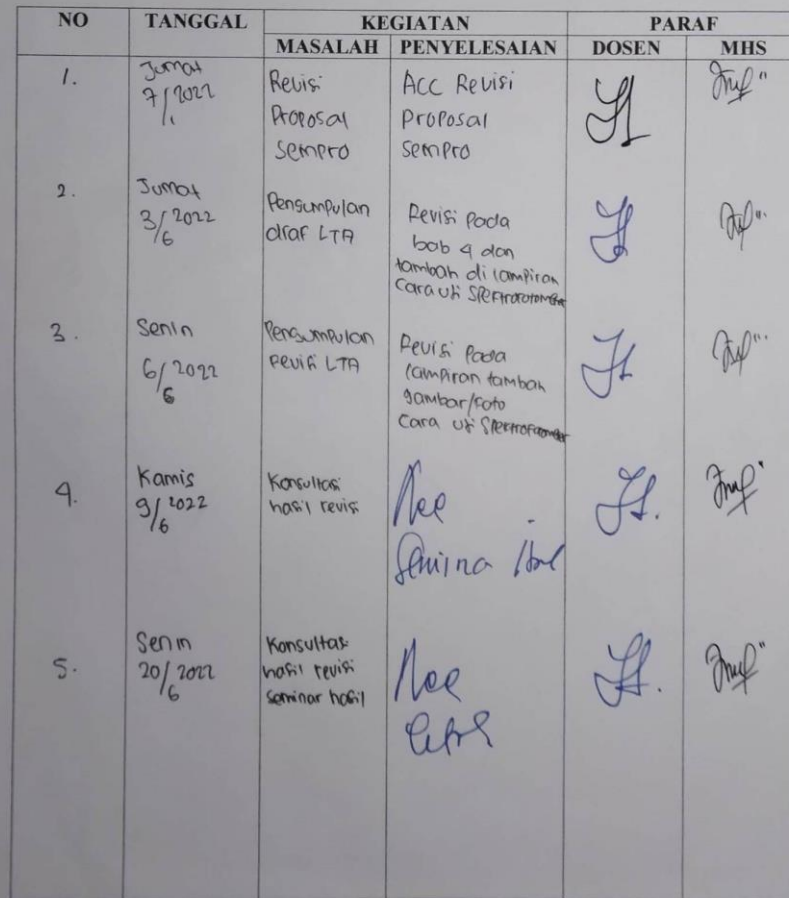 NO TANGGAL KEGIATAN PARAF
MASALAH PENYELESAIAN DOSEN MHS
1. Jumat
7/1 2022
Revisi
Proposal
sempro
Acc Revisi
proposal
sempro
2. Jumat
3/6 2022
Pengumpulan
draf LTA
Revisi Pada
bab 4 dan
tambah di lampiran
cara uji Spektrofotometer
3. Senin
6/6 2022
Pengumpulan
revisi LTA
Revisi Pada
lampiran tambah
gambar/foto
cara uji Spektrofotometer
4. Kamis
9/6 2022
Konsultasi
hasil revisi
Acc
5. Senin
20/6 2022
Konsultasi
hasil revisi
seminar hasil
Acc